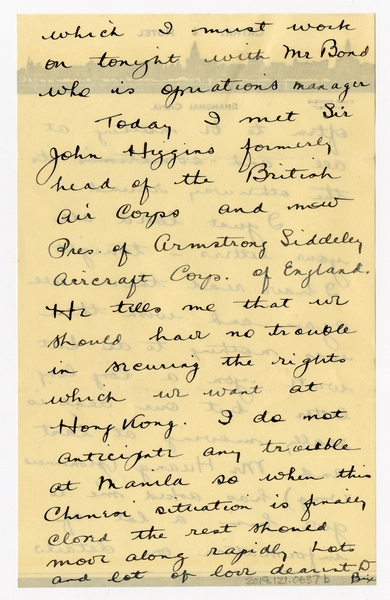 which I must work
on tonight with Mr Bond
who is operations manager
Today I met Sir
John Higgins formerly
head of the British
Air Corps and now
Pres. of Armstrong Siddeley
Aircraft Corp. of England.
He tells me that we
should have no trouble
in securing the rights
which we want at
Hong Kong. I do not
anticipate any trouble
at Manila so when this
Chinese situation is finally
closed the rest should
move along rapidly Lots
and lot of love dearest D
Bix
2019.121.0637b